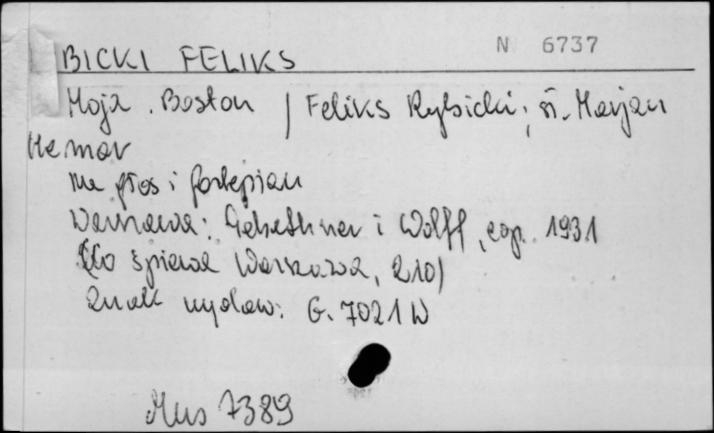 N 6737
BICKI FELIKS
Moja . Boston / Feliks Rybicki ; sł. Marjan
Hemar
na głos i fortepian
Warszawa : Gebethner i Wolff , cop. 1931
(Co śpiewa Warszawa, 210)
Znak wydaw: G. 7021 W
Mus 7389